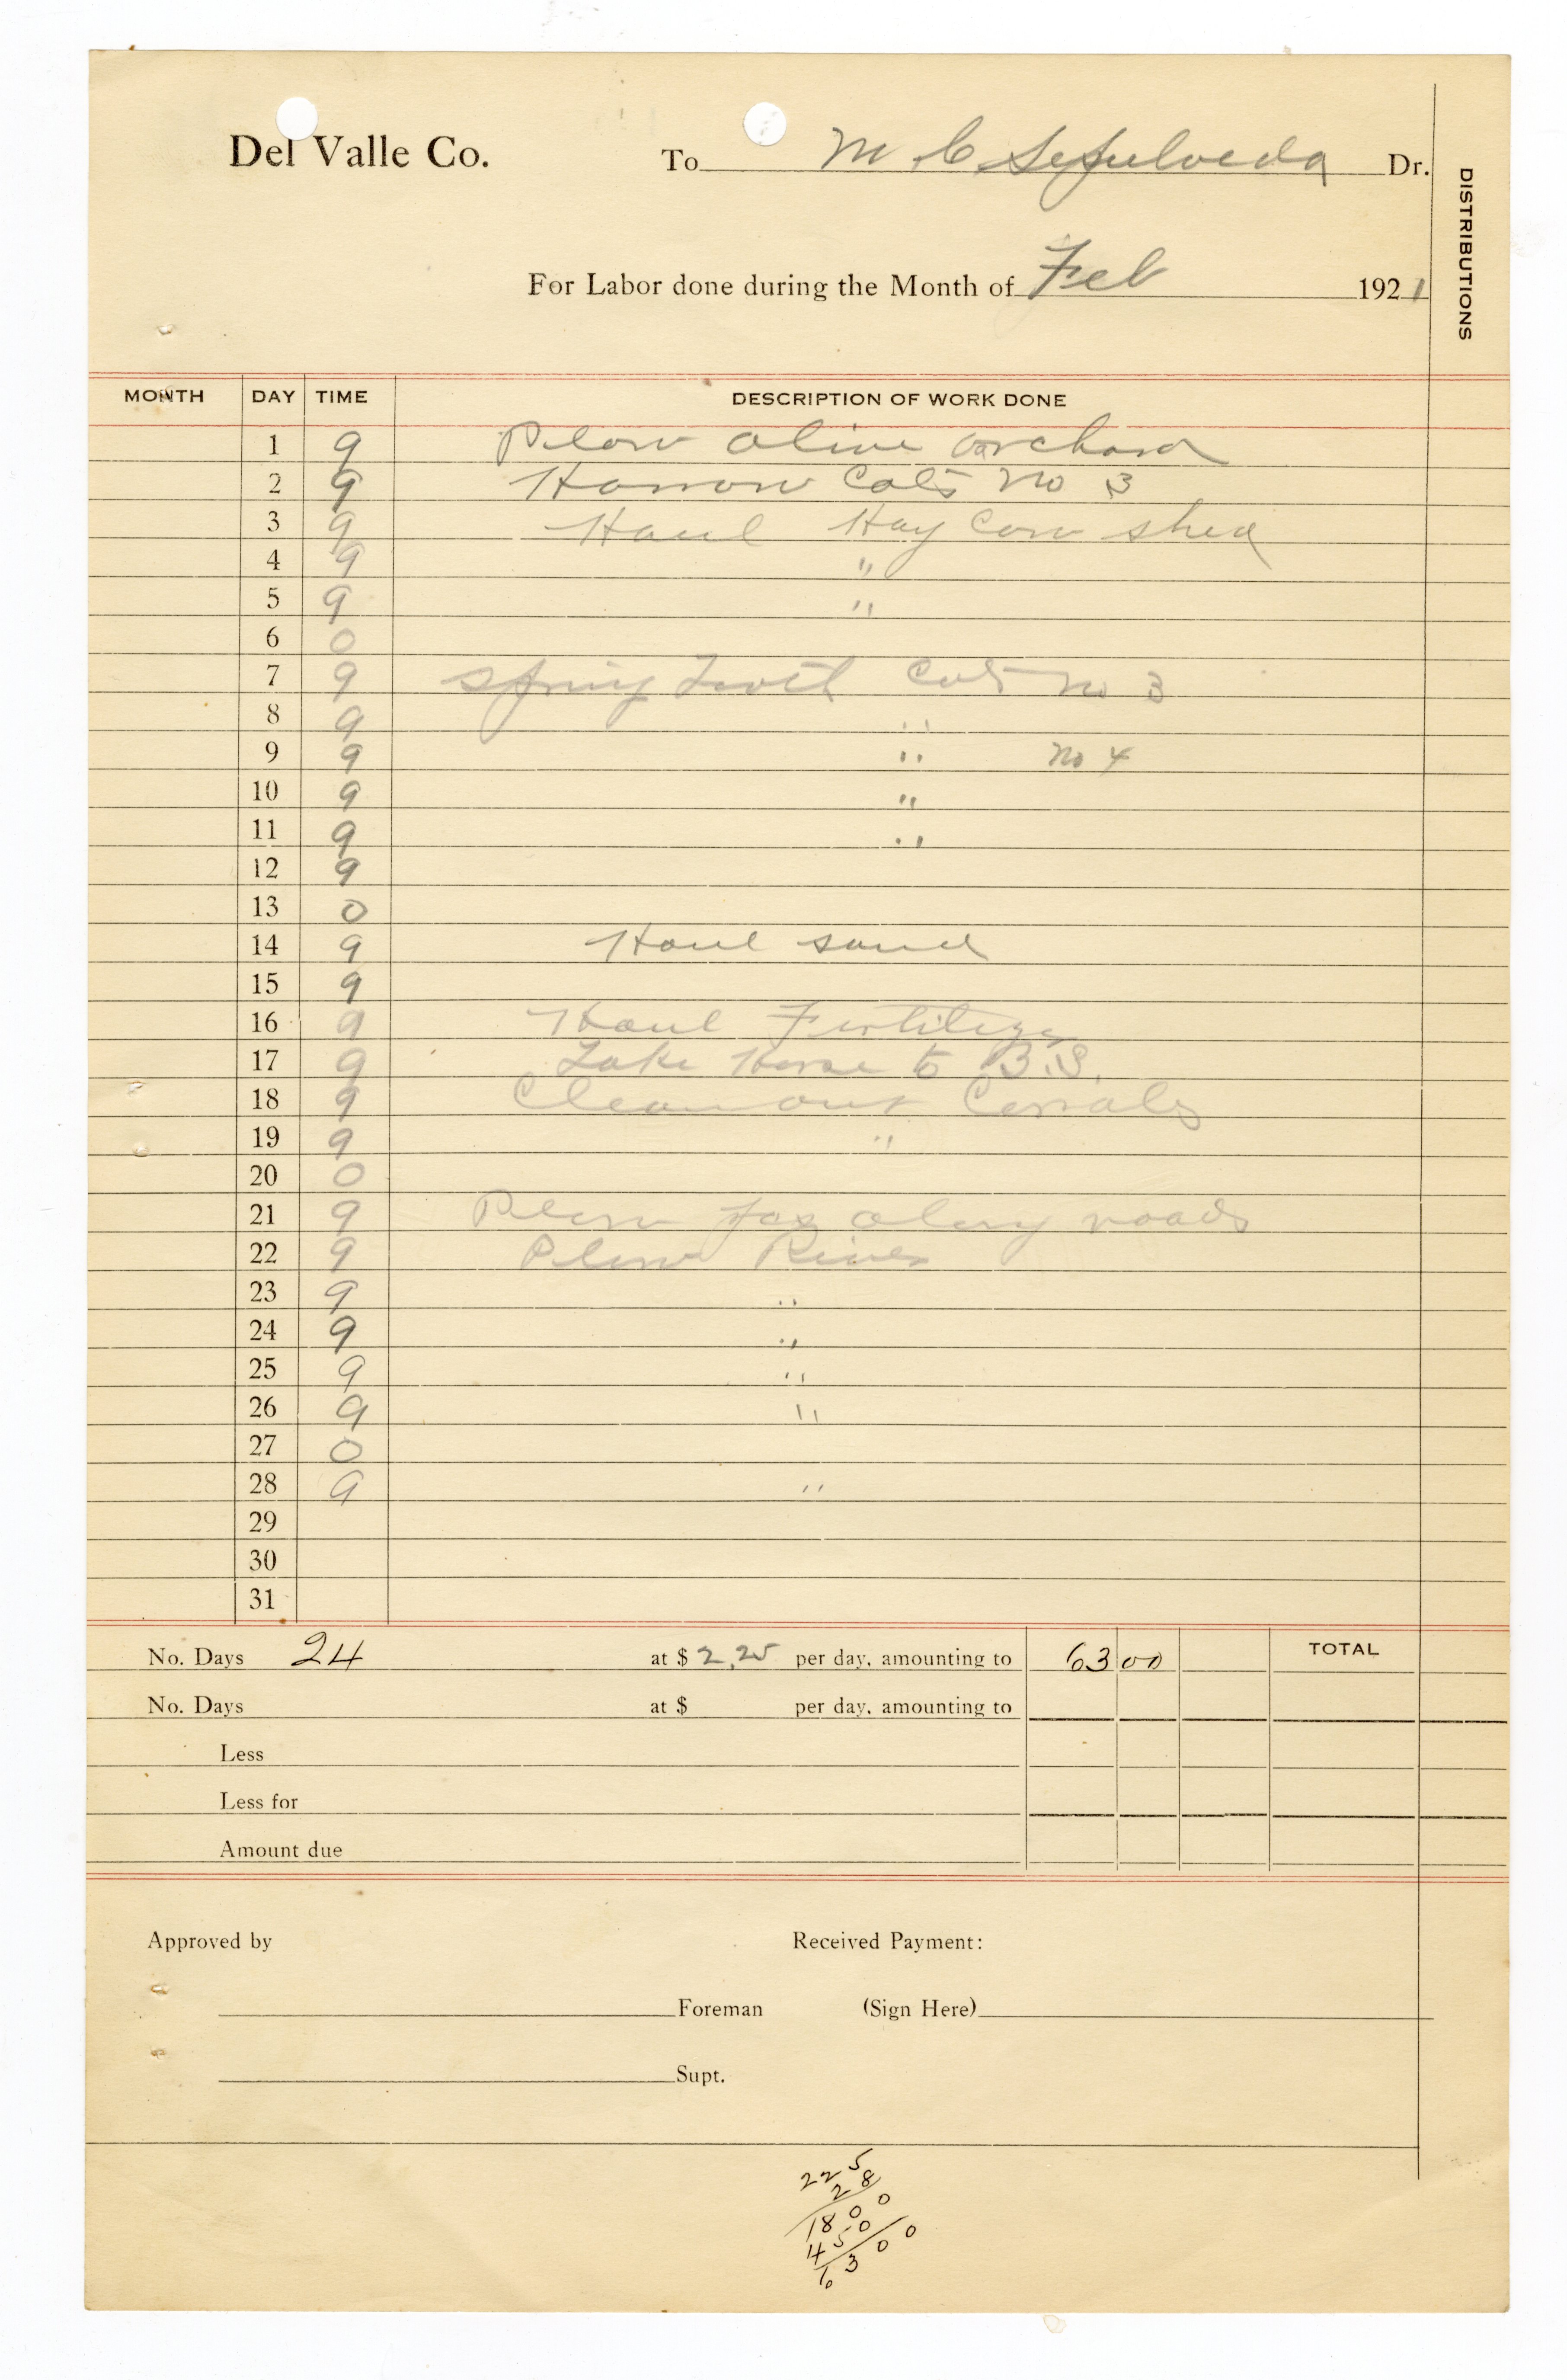 Del Valle Co. To M C Sepulveda Dr.
DISTRIBUTIONS
For Labor done during the Month of Feb 1921
MONTH DAY TIME DESCRIPTION OF WORK DONE
1 9 Plow olive orchard
2 9 Harrow Cots No 3
3 9 Haul Hay Cow shed
4 9 "
5 9 "
6 0
7 9 Spring Tooth Cots No 3
8 9 "
9 9 " No 4
10 9 "
11 9 "
12 9
13 0
14 9 Haul sand
15 9
16 9 Haul Fertilizer
17 9 Take Horse to B.S.
18 9 Clean out Corrals
19 9 "
20 0
21 9 Plow along roads
22 9 Plow River
23 9 "
24 9 "
25 9 "
26 9 "
27 0
28 9 "
29
30
31
No. Days 24 at $ 2.25 per day, amounting to 63 00 TOTAL
No. Days at $ per day, amounting to
Less
Less for
Amount due
Approved by Received Payment:
Foreman (Sign Here)
Supt.
225
28
1800
450
6300